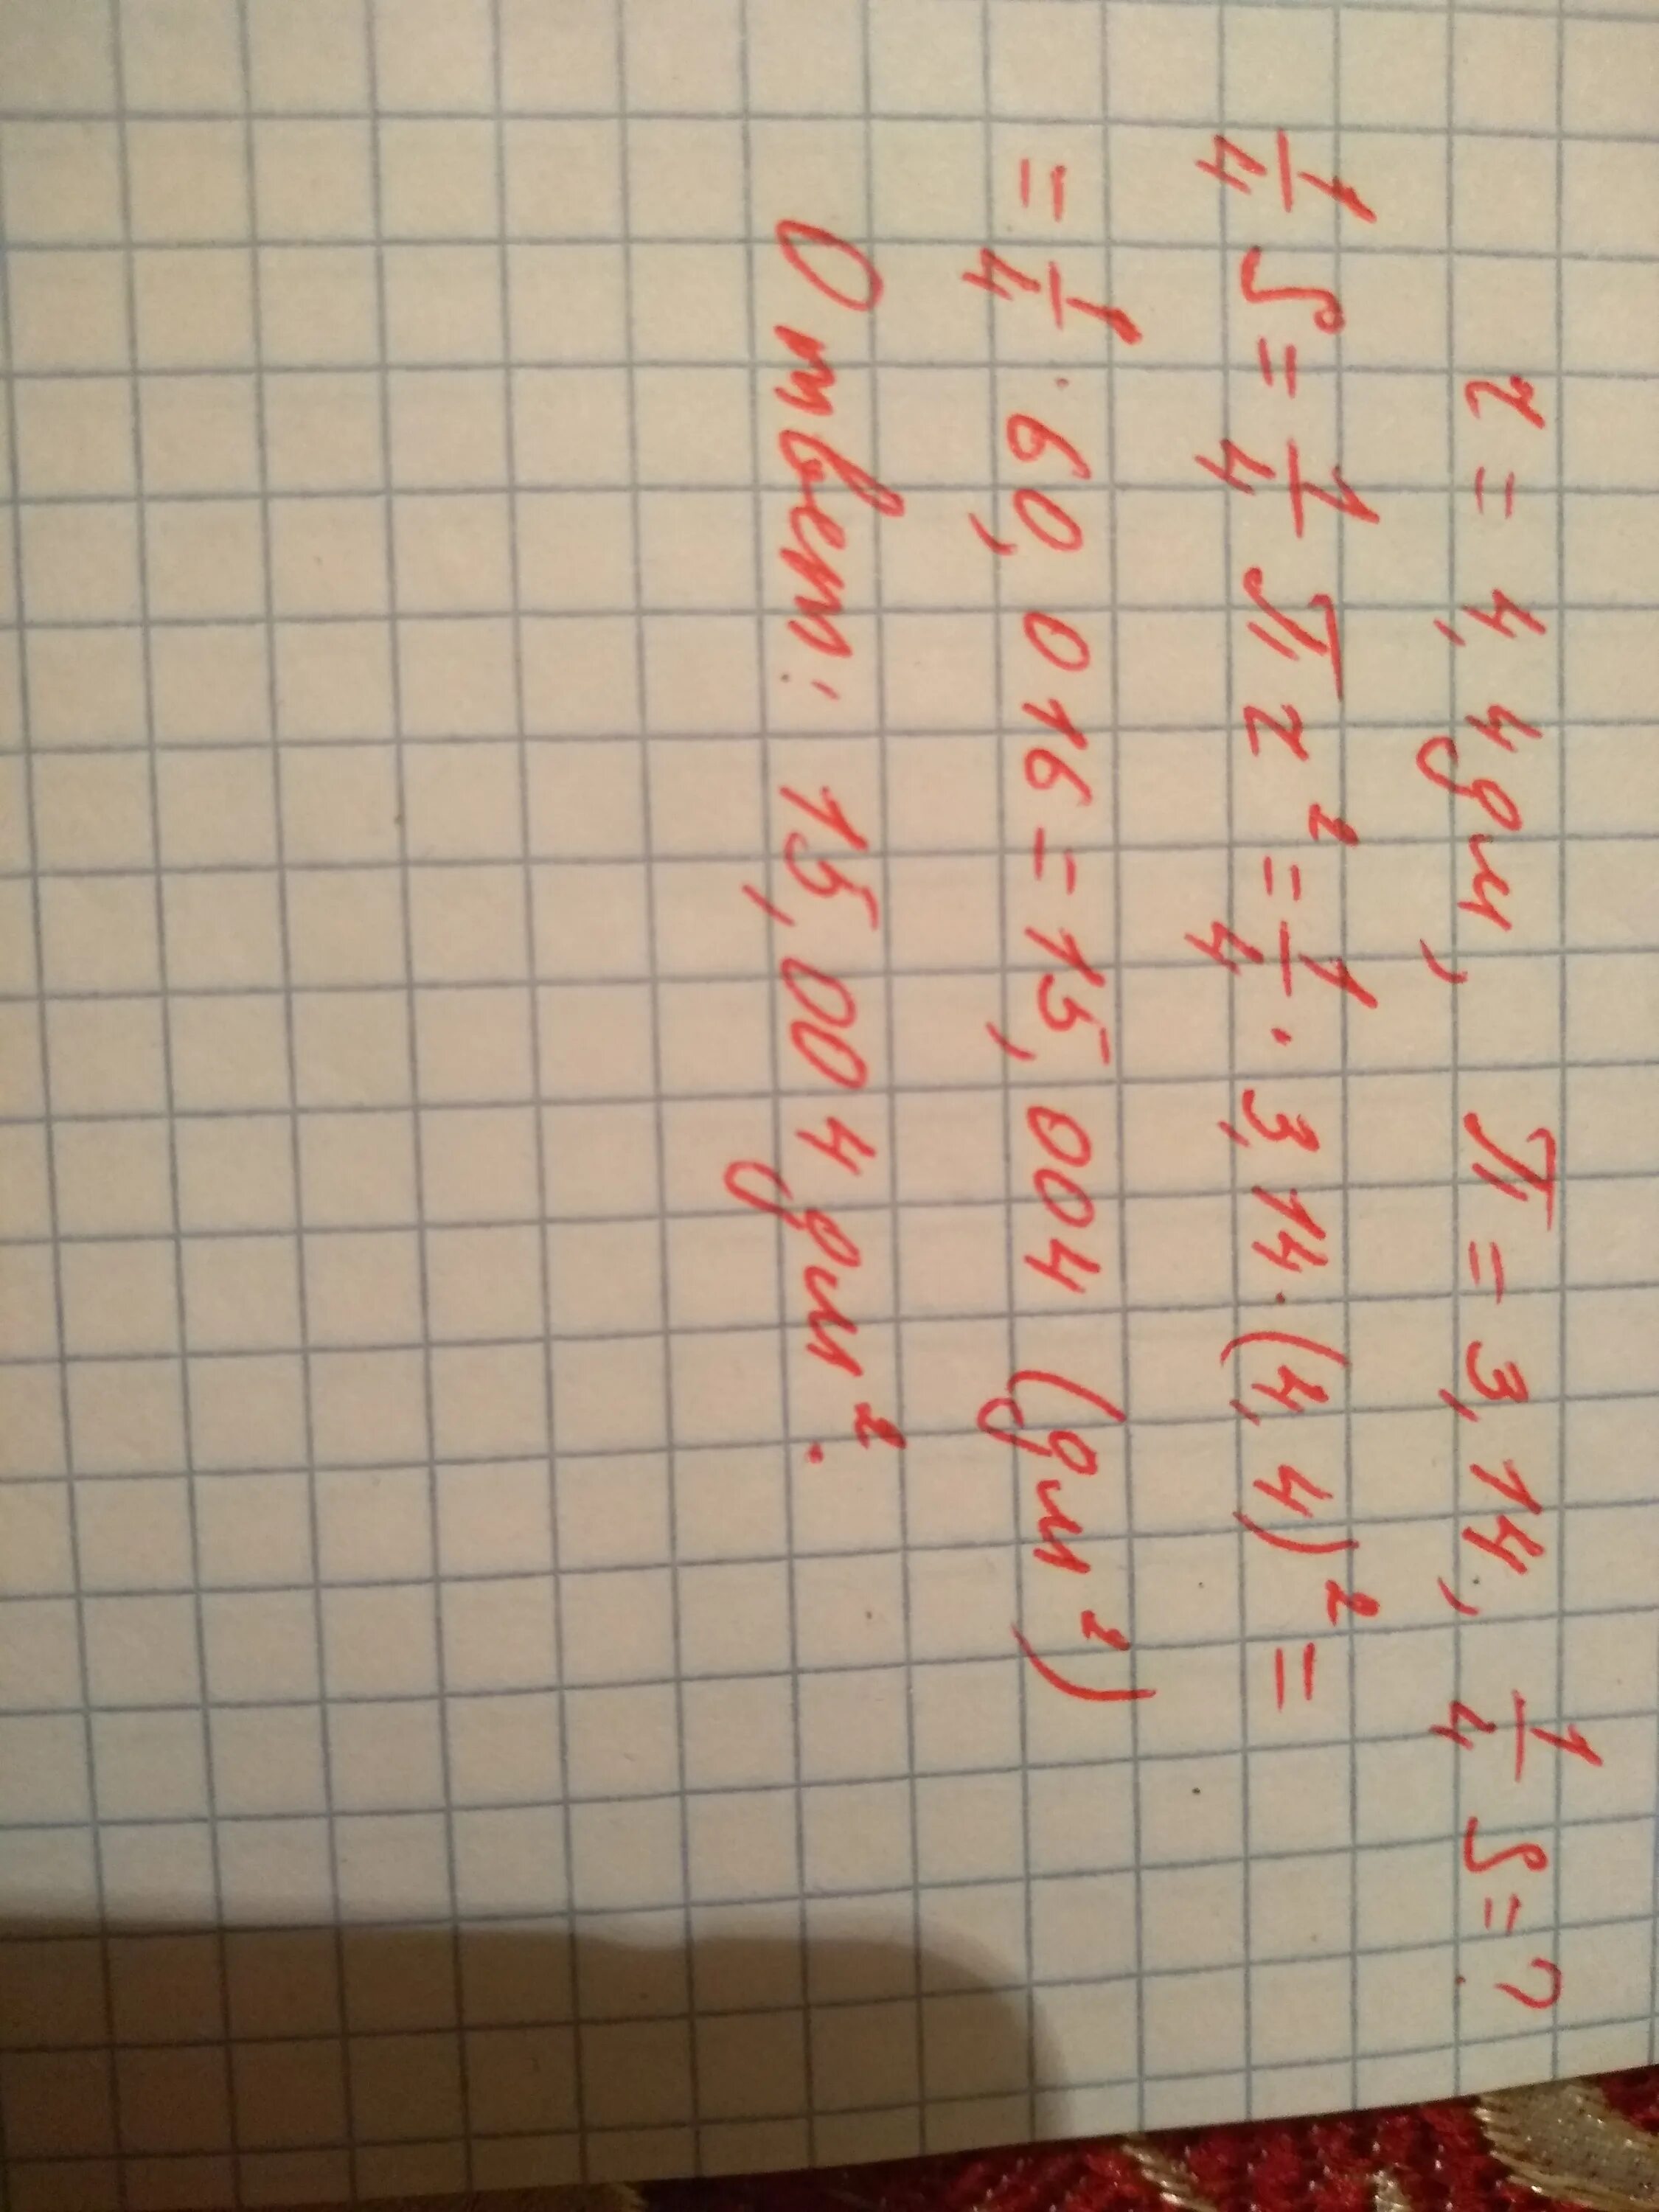 r = 4,4дм, π = 3,14, 1/4 S = ?
1/4 S = 1/4 π r² = 1/4 · 3,14 · (4,4)² =
= 1/4 · 60,016 = 15,004 (дм²)
Ответ: 15,004 дм².